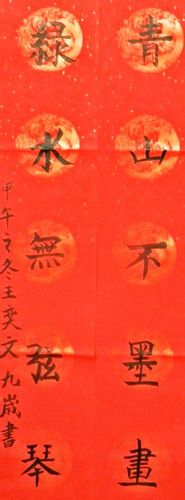 青山不墨畫
緑水無弦琴
甲午之冬王奕文九歲書